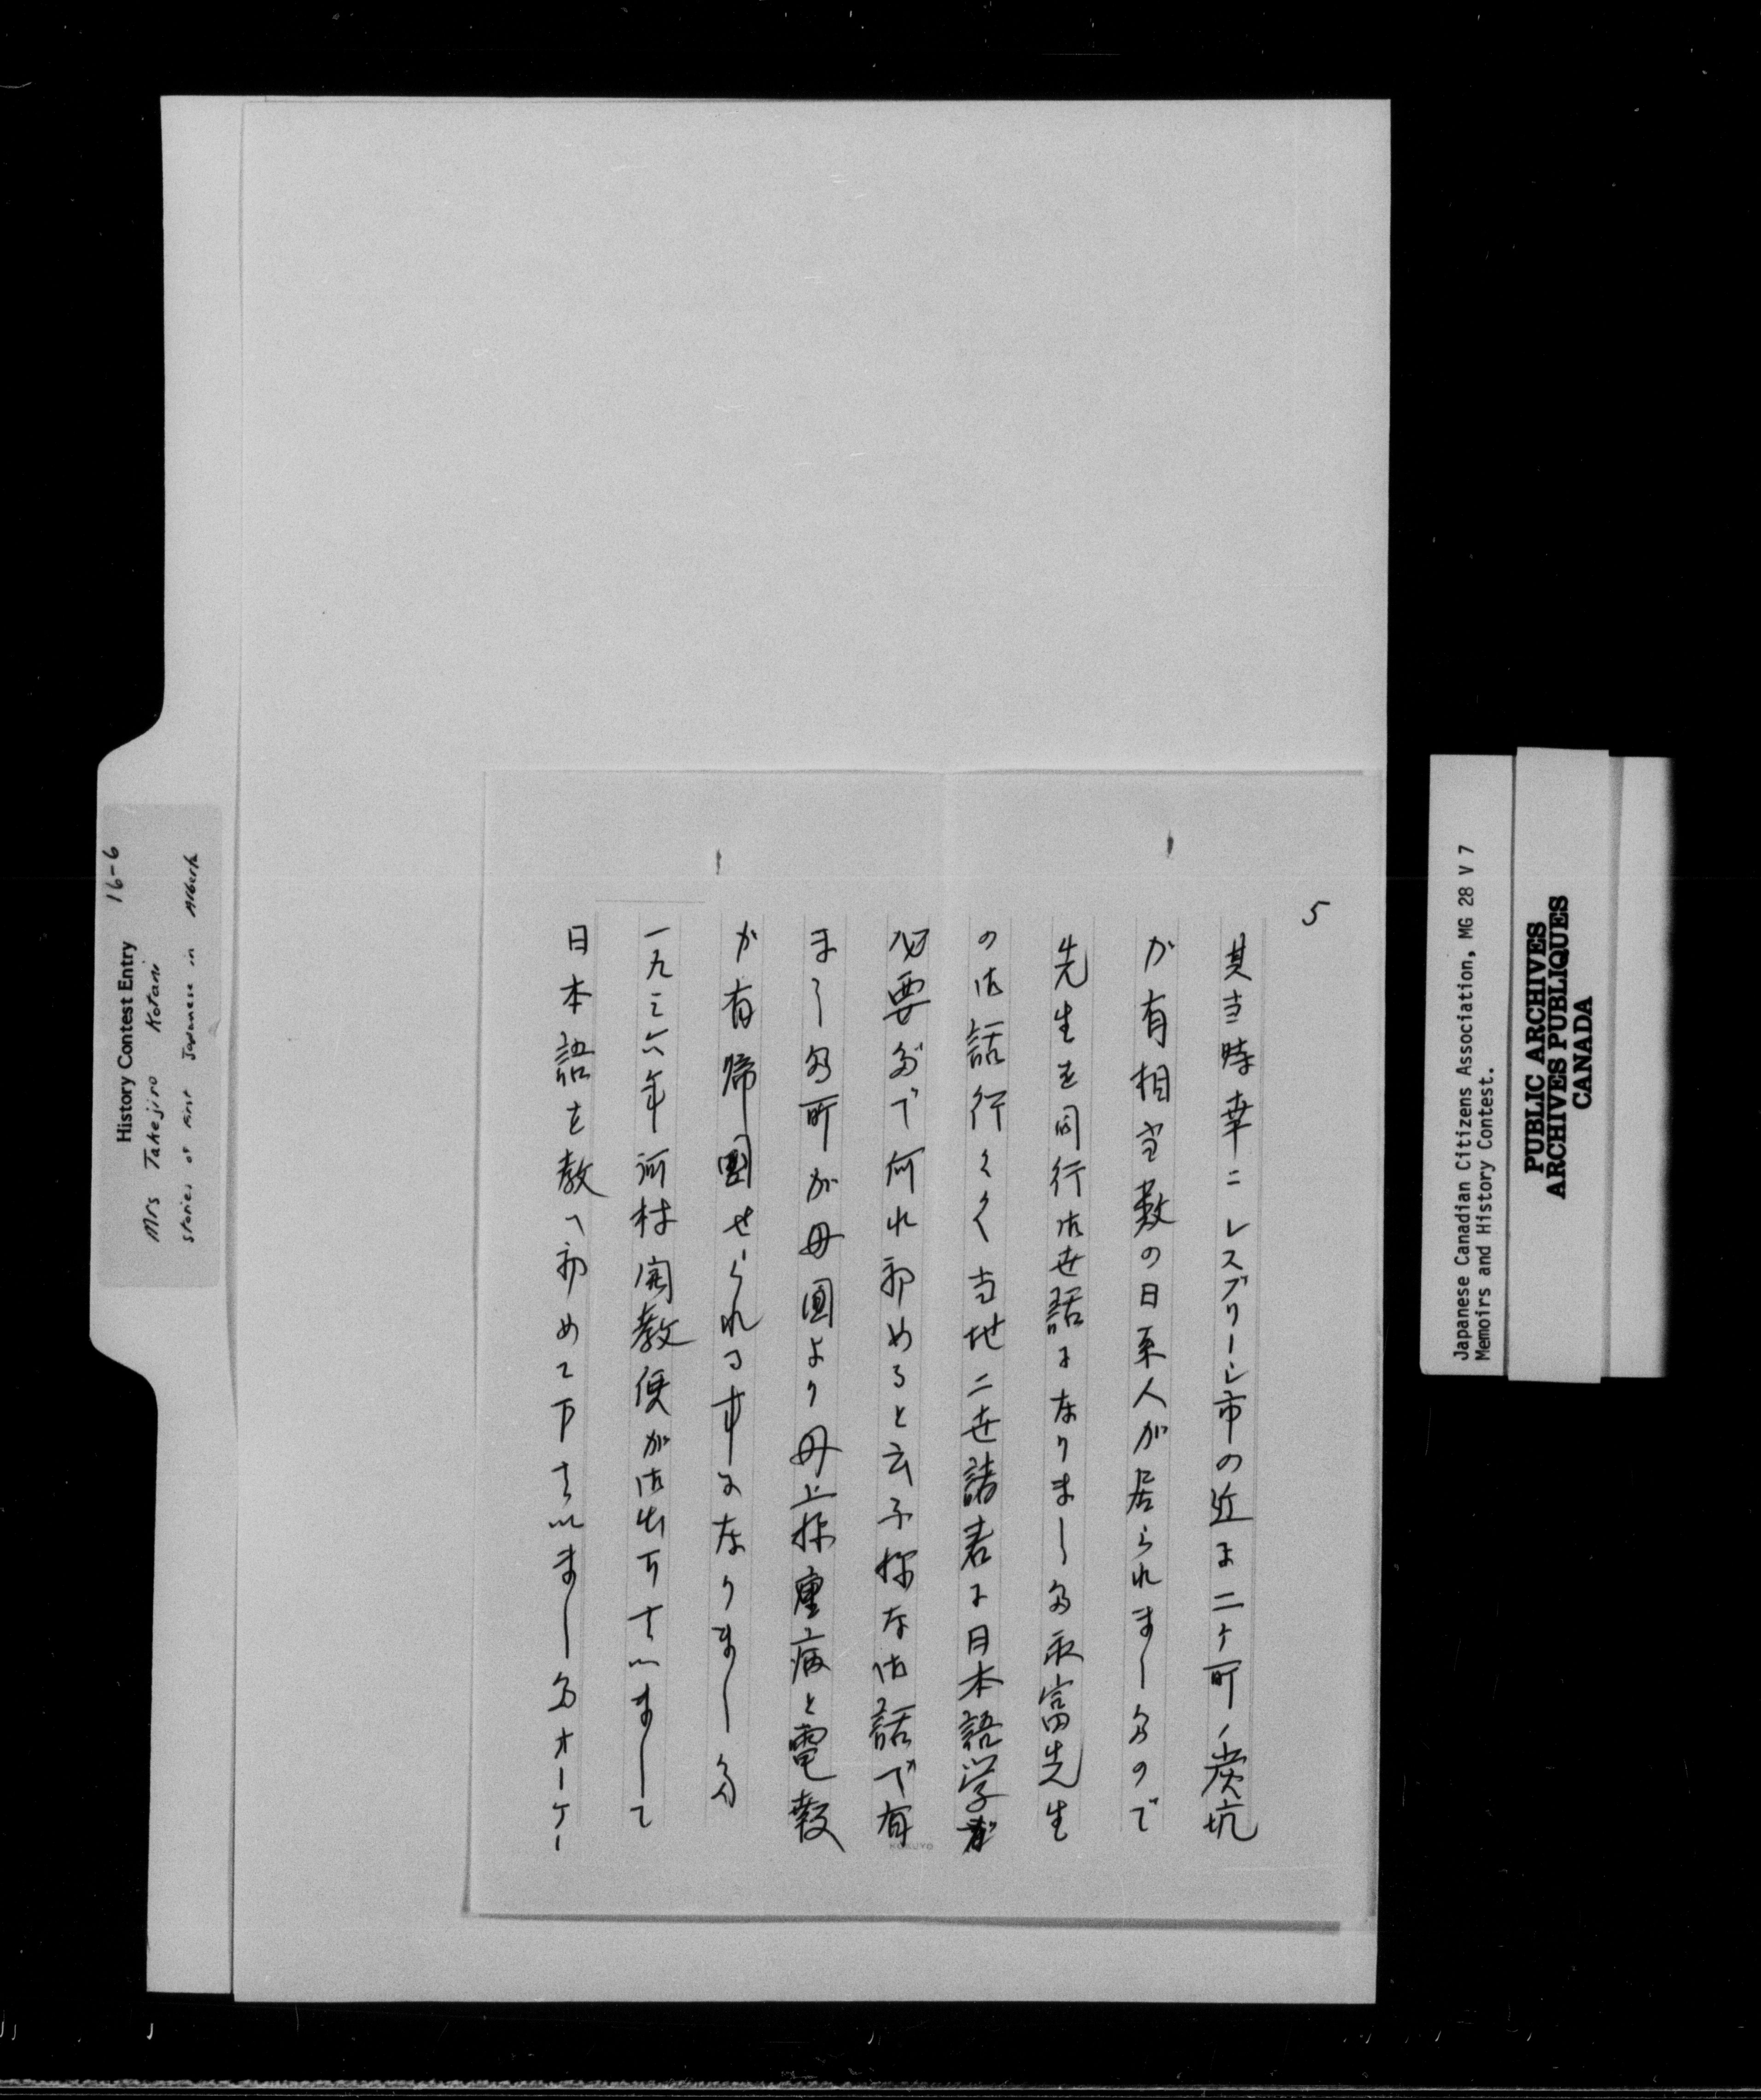 5
其当時幸ニレスブリーヂ市の近よ二ヶ所ノ炭坑
が有相当数の日系人が居られましたので
先生を同行御世話になりました永富先生
の御話行くく当地二世諸君に日本語学が
必要だで何れ初めると云ふ様な御話で有
ました所が母国より母上様重病と電報
が有帰国せられる事になりました
一九三六年河村開教使が御出下さいまして
日本語を教へ初めて下さいましたオーケー
History Contest Entry 16-6
Mrs Takejiro Kotani
stories of First Japanese in Alberta
Japanese Canadian Citizens Association, MG 28 V 7
Memoirs and History Contest.
PUBLIC ARCHIVES
ARCHIVES PUBLIQUES
CANADA
KOKUYO